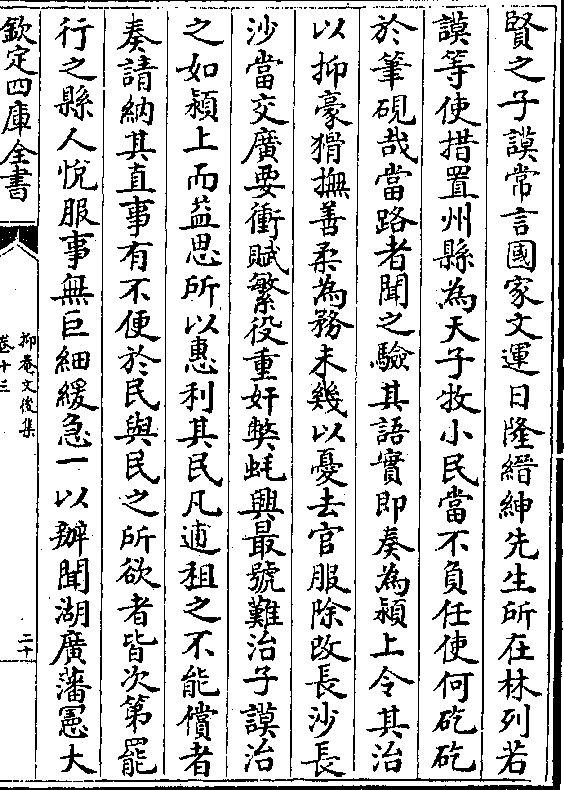 賢之子謨常言國家文運日隆縉紳先生所在林列若
謨等使措置州縣為天子牧小民當不負任使何矻矻
於筆硯哉當路者聞之驗其語實即奏為潁上令其治
以抑豪猾撫善柔為務未幾以憂去官服除改長沙長
沙當交廣要衝賦繁役重奸弊蚝興最號難治子謨治
之如潁上而益思所以惠利其民凡逋租之不能償者
奏請納其直事有不便於民與民之所欲者皆次第罷
行之縣人悅服事無巨細緩急一以辦聞湖廣藩憲大
欽定四庫全書
抑菴文後集
卷十三
二十